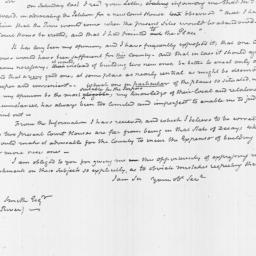 on Saturday last I rec'd your letter,
informing me that
ward, in advocating the petition for a new Court House had observed
him that the Town would some when the present also would be abandoned
Court House be erected, and that I had
the Place"
It has long been my opinion, and I have frequently expressed it, that one
House would have been sufficient for this County; and that in case it should
come necessary, instead of building two new ones, to erect only
and that a very good one, at some place as nearly central as might be
proper and convenient. — which any particular of the places so situated,
my opinion be the most eligible, my knowledge of their local and relative
circumstances has always been too limited and imperfect to enable me to
out —
From the Information I have received, and which I believe to be correct
the two present Court Houses are far from being in that State of Decay which
would make it adviseable for the County to incur the Expence of building
or more new ones —
I am obliged to you for giving me this opportunity of expressing my
sentiments on these subjects so explicitly, as to obviate mistakes respecting them
I am Sir your ob. Serv.
Smith Esq.